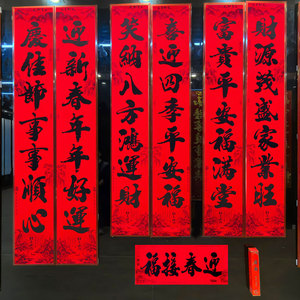 財源茂盛家業旺
富貴平安福滿堂
喜迎四季平安福
笑納八方鴻運財
迎新春年年好運
慶佳節事事順心
迎春接福